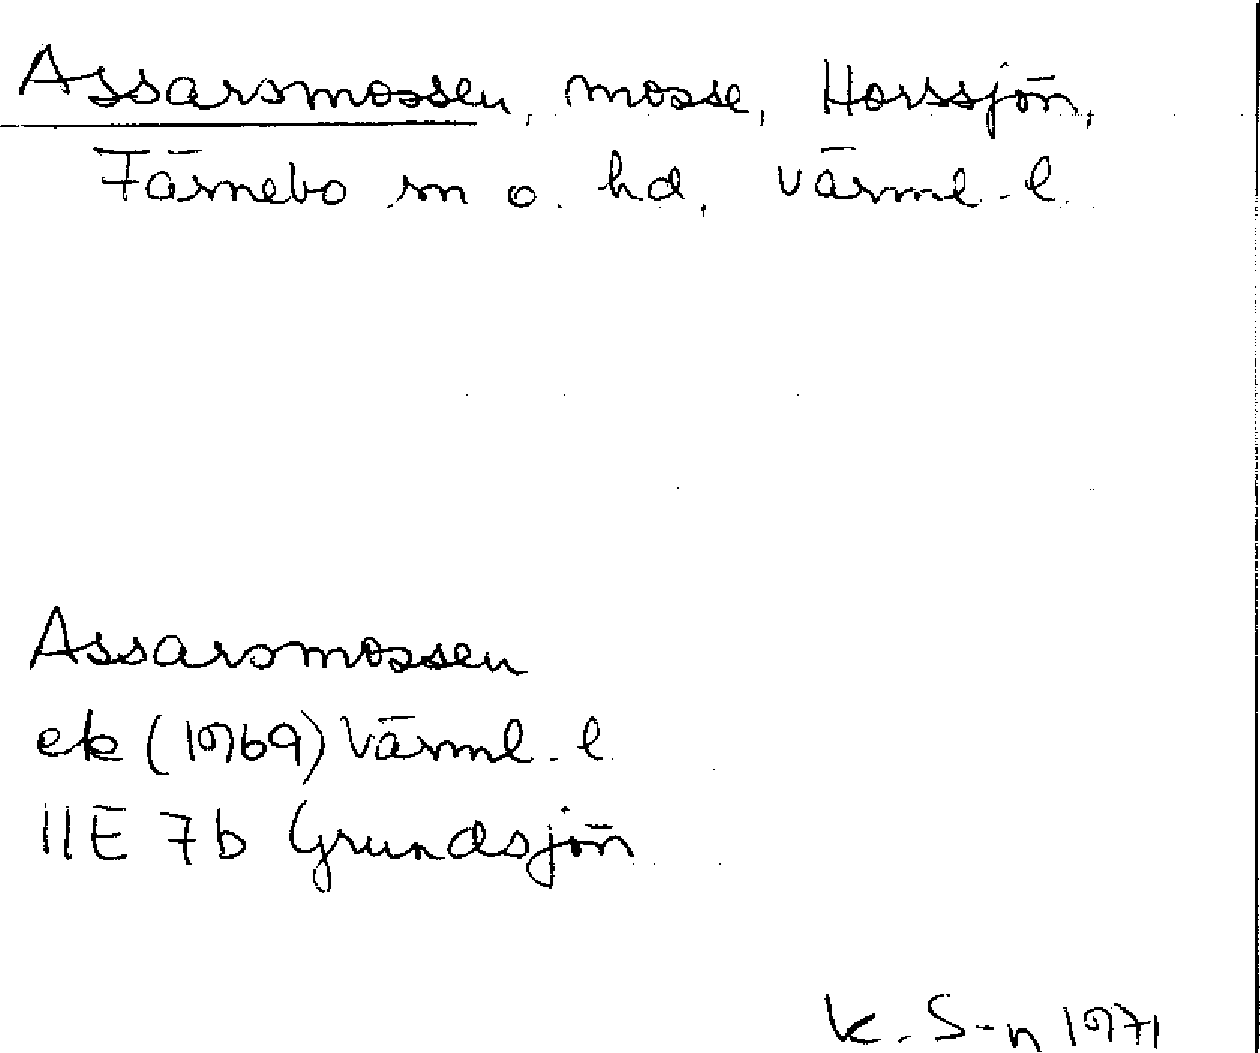 Assarsmossen, mosse, Horssjön,
Färnebo sn o. hd, Värml. l.
Assarsmossen
ek (1969) Värml. l.
11E 7b Grundsjön
K. S-n 1971